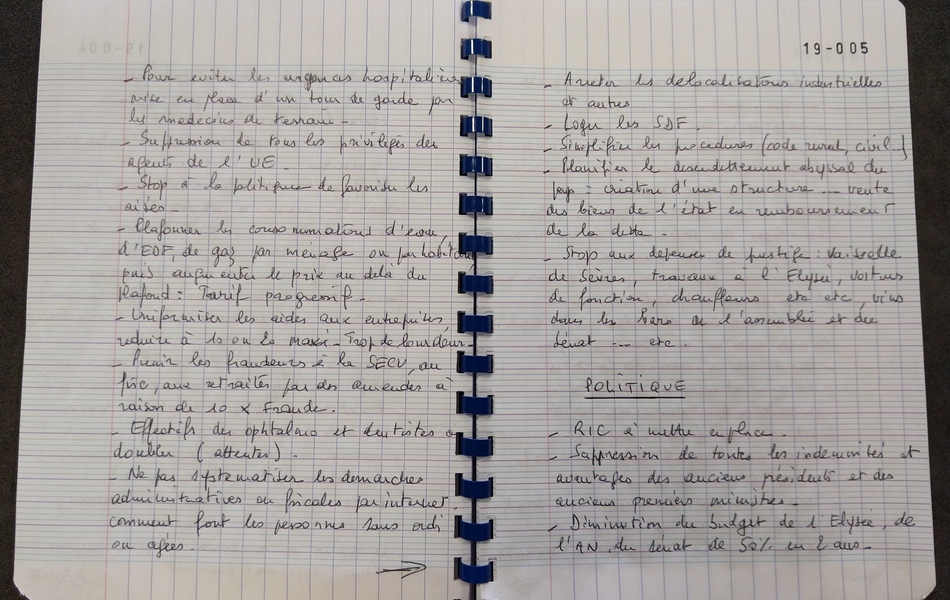 - Pour eviter les urgences hospitalières
mise en place d'un tour de garde par
les medecins de terrain -
- Suppression de tous les privilèges des
agents de l'UE.
- Stop à la politique de favoriser les
aisés -
- Plafonner les consommations d'eau,
d'EDF, de gaz par ménage ou par habitant
puis augmenter le prix au delà du
plafond : Tarif progressif -
- Uniformiser les aides aux entreprises,
reduire à 10 ou 20 maxi - Trop de lourdeur -
- Punir les fraudeurs à la SECU, au
fisc, aux retraites par des amendes à
raison de 10 x Fraude.
- Effectifs des ophtalmo et dentistes à
doubler (attentes).
- Ne pas systematiser les demarches
administratives ou fiscales par internet,
comment font les personnes sans ordi
ou agées.
19-005
- Arreter les delocalisations industrielles
et autres
- Loger les SDF.
- Simplifier les procedures (code rural, civil...)
- Planifier le desendettement abyssal du
pays : création d'une structure --- vente
des biens de l'état en remboursement
de la dette -
- Stop aux depenses de prestige : vaisselle
de Sèvres, travaux à l'Elysée, voitures
de fonction, chauffeurs etc etc, vins
dans les bars de l'assemblée et du
Sénat --- etc.
POLITIQUE
- RIC à mettre en place.
- Suppression de toutes les indemnités et
avantages des anciens présidents et des
anciens premiers ministres -
- Diminution du budget de l'Elysée, de
l'AN, du sénat de 50% en 2 ans -